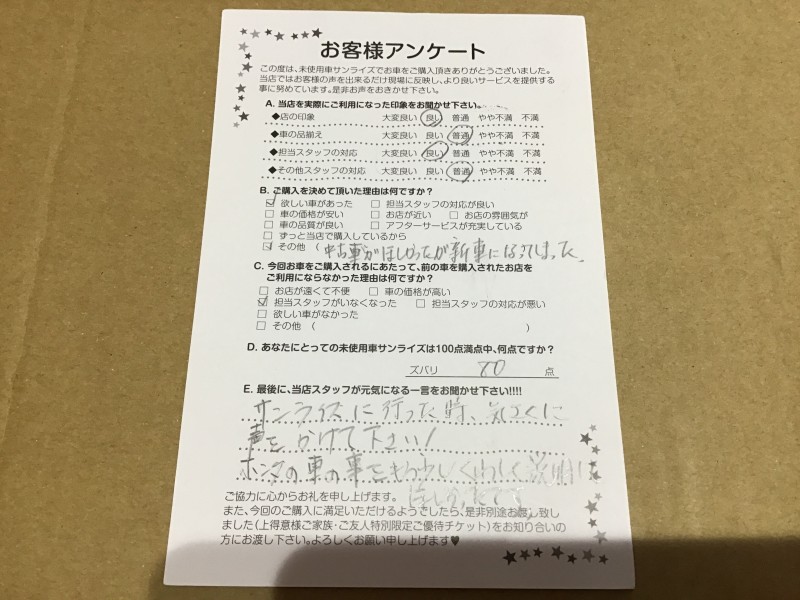 お客様アンケート
この度は、未使用車サンライズでお車をご購入頂きありがとうございました。
当店ではお客様の声を出来るだけ現場に反映し、より良いサービスを提供する
事に努めています。是非お声をおきかせ下さい。
A. 当店を実際にご利用になった印象をお聞かせ下さい。
◆店の印象 大変良い 良い 普通 やや不満 不満
◆車の品揃え 大変良い 良い 普通 やや不満 不満
◆担当スタッフの対応 大変良い 良い 普通 やや不満 不満
◆その他スタッフの対応 大変良い 良い 普通 やや不満 不満
B. ご購入を決めて頂いた理由は何ですか？
☑ 欲しい車があった □ 担当スタッフの対応が良い
□ 車の価格が安い □ お店が近い □ お店の雰囲気が
□ 車の品質が良い □ アフターサービスが充実している
□ ずっと当店で購入しているから
☑ その他 ( 中古車がほしかったが新車になってしまった。
C. 今回お車をご購入されるにあたって、前の車を購入されたお店を
ご利用にならなかった理由は何ですか？
□ お店が遠くて不便 □ 車の価格が高い
☑ 担当スタッフがいなくなった □ 担当スタッフの対応が悪い
□ 欲しい車がなかった
□ その他 ( )
D. あなたにとっての未使用車サンライズは100点満点中、何点ですか？
ズバリ 80 点
E. 最後に、当店スタッフが元気になる一言をお聞かせ下さい!!!!
サンライズに行った時、気さくに
声をかけて下さい！
ホンダの車の事をもう少しくわしく説明
ほしかったです
ご協力に心からお礼を申し上げます。
また、今回のご購入に満足いただけるようでしたら、是非別途お渡し致し
ました（上得意様ご家族・ご友人特別限定ご優待チケット）をお知り合いの
方にお渡し下さい。よろしくお願い申し上げます♥